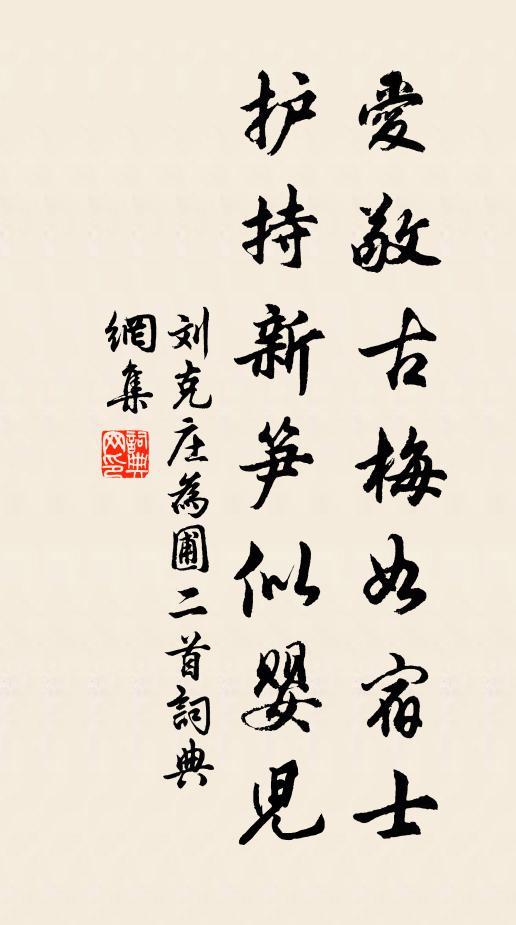 愛敬古梅如宿士
护持新笋似嬰児
刘克庄為圃二首詞典
網集
詞典
网印